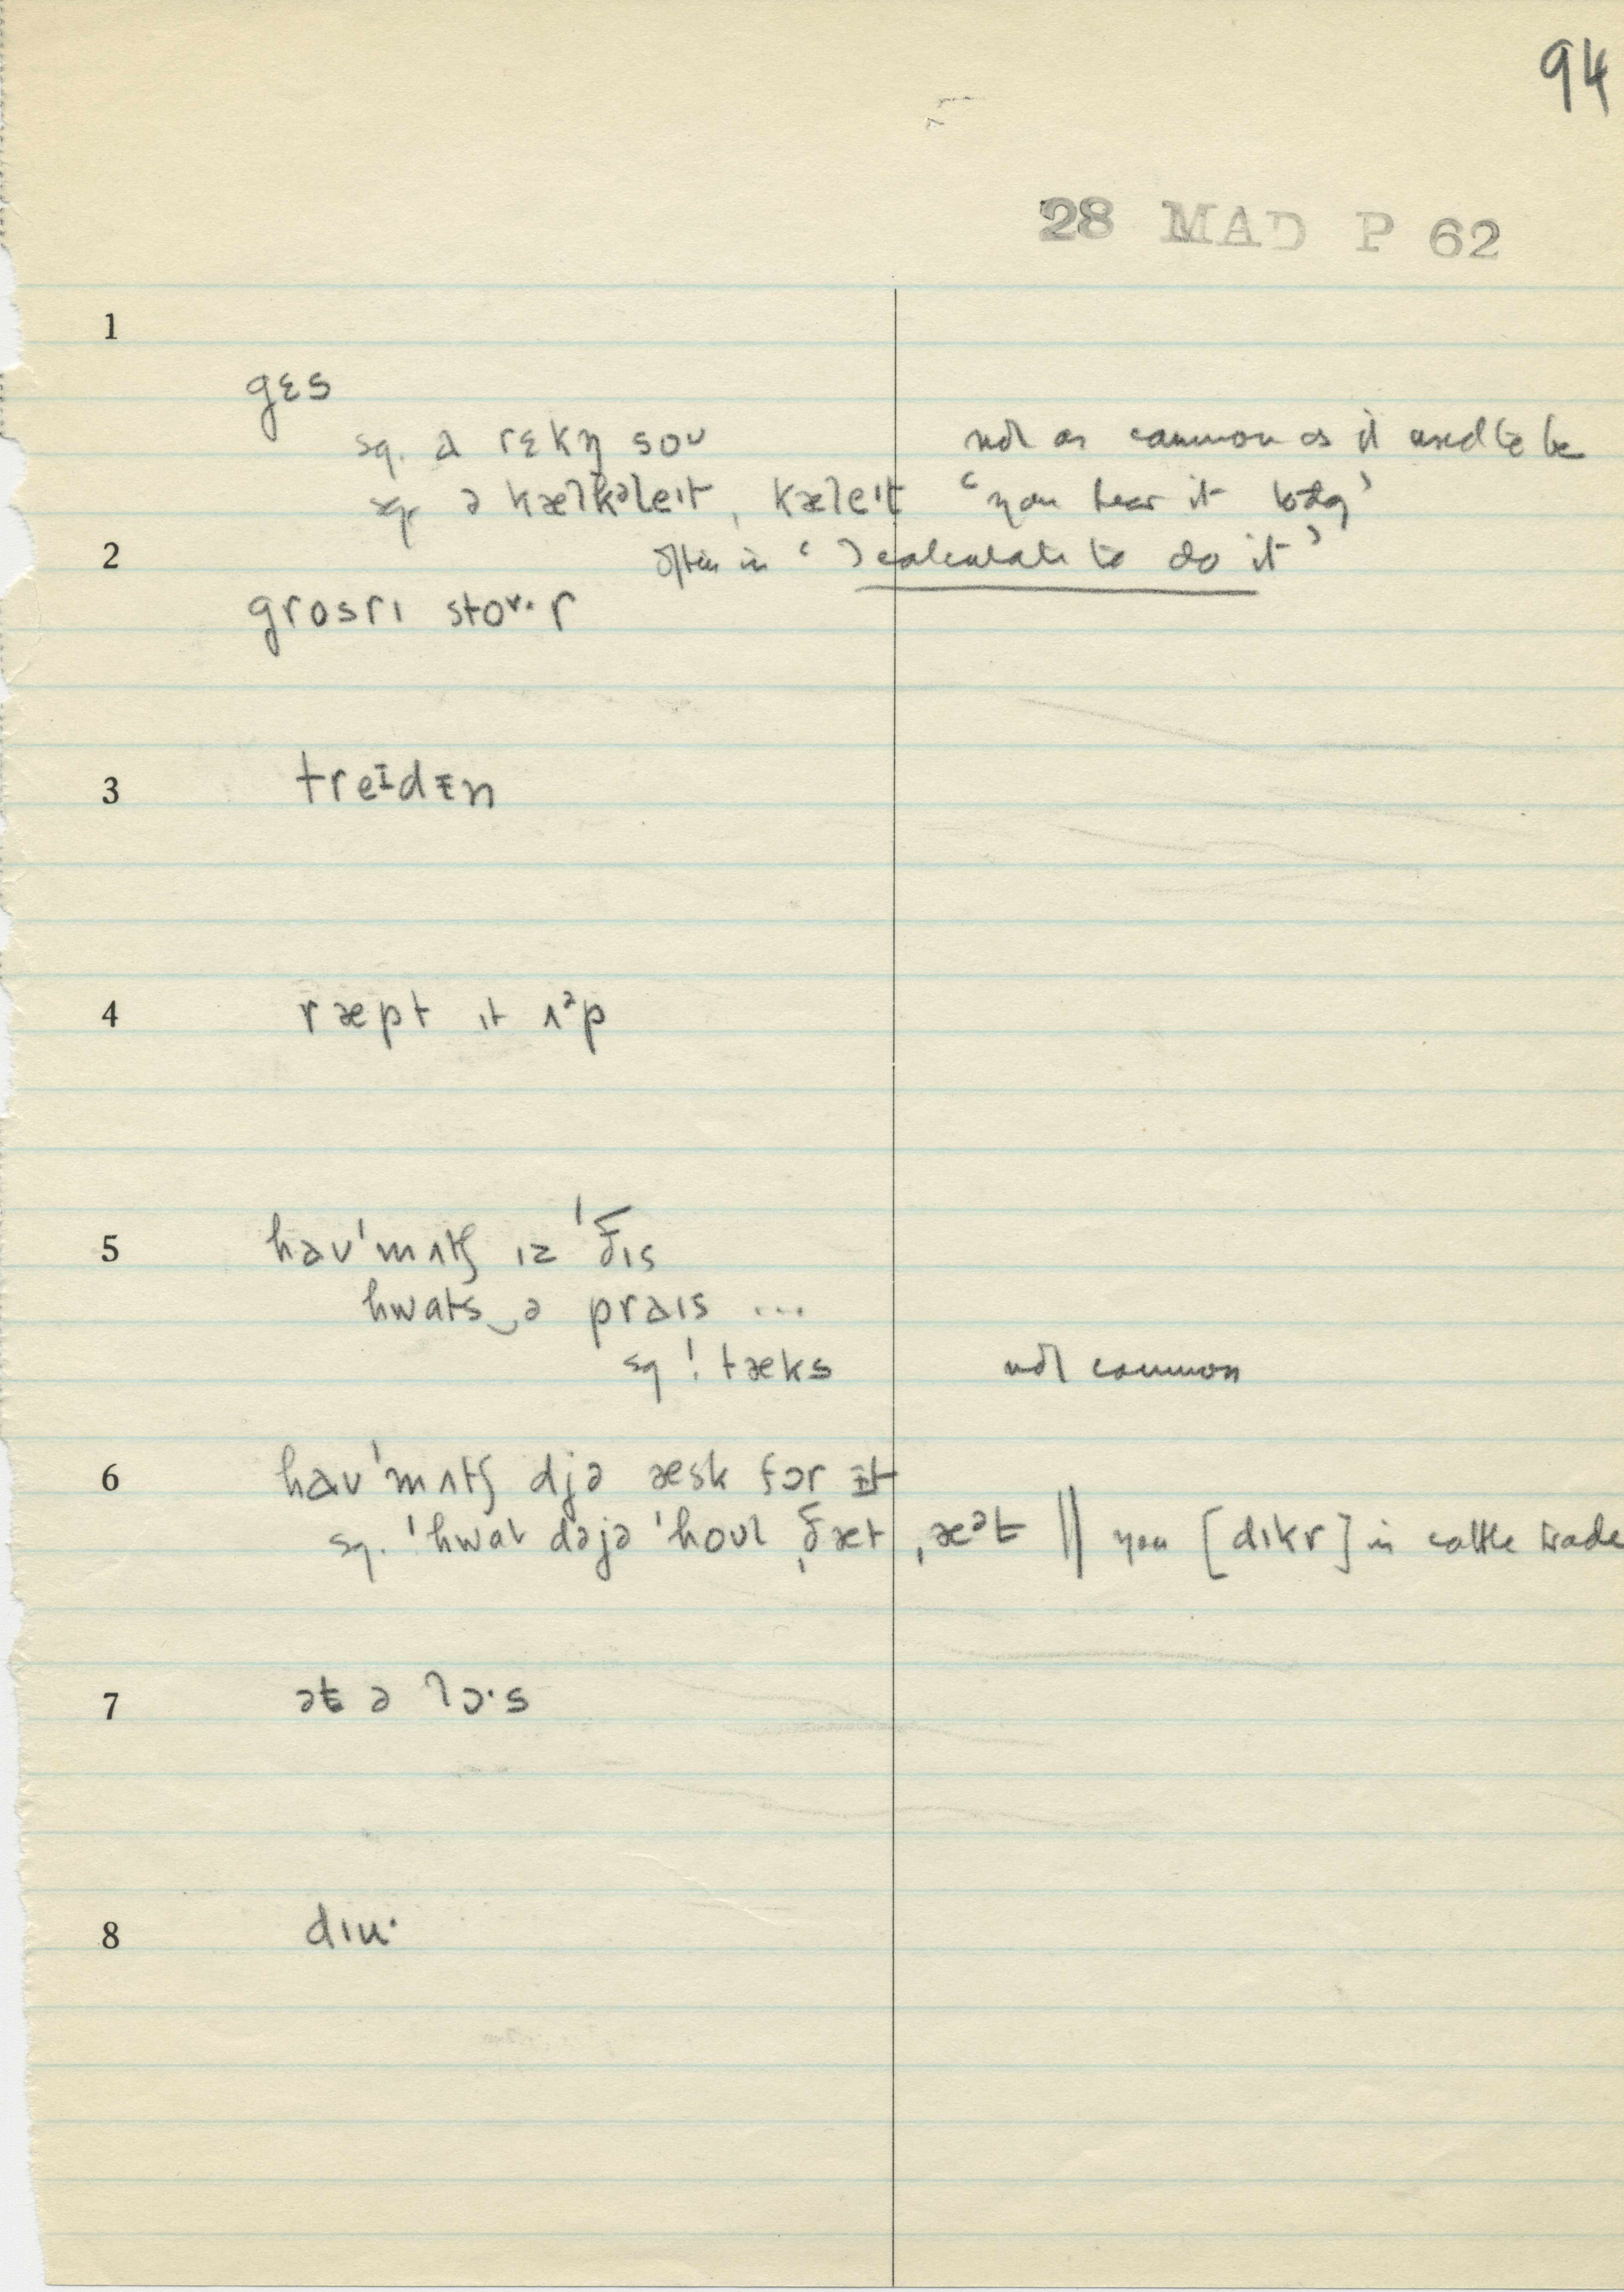 94
28 MAD P 62
1
gɛs
sq. a rɛkn̩ soʊ not as common as it used to be
sq. ə kælkəleɪt, kæleɪt 'you hear it today'
2 often in 'I calculate to do it'
grosrɪ stoᵛ·r
3 treɪdɪn
4 ræpt ɪt ʌᵊp
5 haʊ'mʌtʃ ɪz 'ðɪs
hwats‿ə praɪs ...
sq ! tæks not common
6 haʊ'mʌtʃ djə æsk fɔr ɪt
sq. 'hwat dəjə 'hoʊl ˌðæt ˌæᵊt || you [dɪkr] in cattle trade
7 ət ə lɔ·s
8 dɪu·